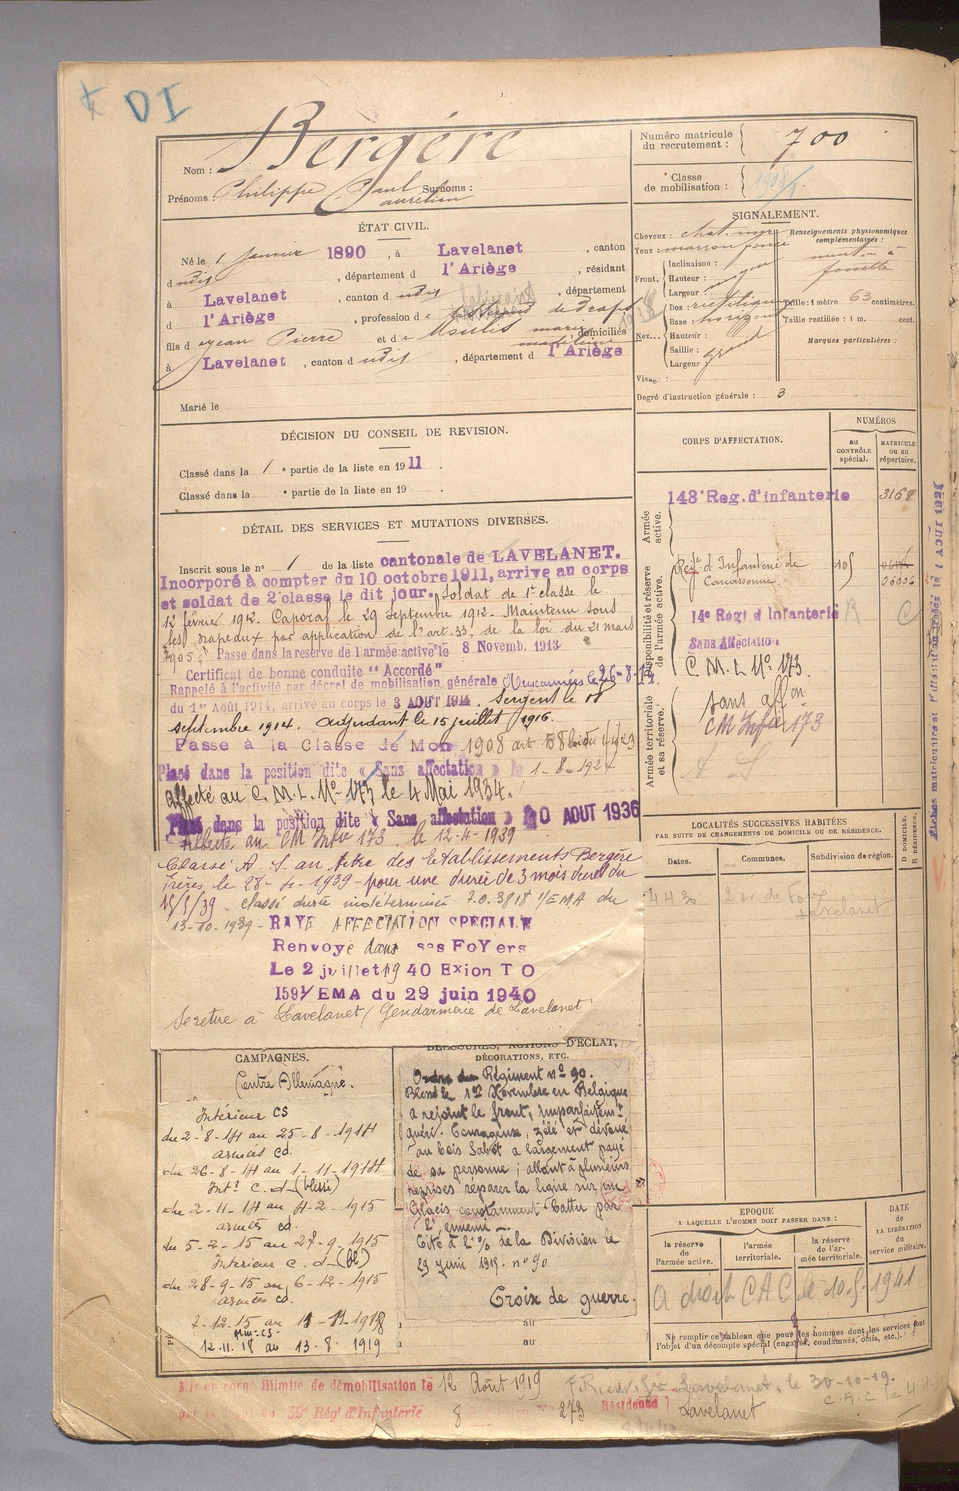 DI
Nom : Bergère
Prénoms : Philippe Paul Surnoms :
aurélien
Numéro matricule
du recrutement : 700
Classe
de mobilisation : 1908/1
ÉTAT CIVIL.
Né le 1 Janvier 1890, à Lavelanet, canton
dudit, département d l'Ariège, résidant
à Lavelanet, canton dudit, département
d l'Ariège, profession de fabricant de draps
fils d Jean Pierre et de Moulis marie madeleine domiciliés
à Lavelanet, canton dudit, département d l'Ariège
Marié le
SIGNALEMENT.
Cheveux : chat. 
Yeux : marron foncé
Front. Inclinaison :
Hauteur : moyen
Largeur :
Nez... Dos : rectiligne
Base : horizont
Hauteur :
Saillie :
Largeur : grand
Visage :
Renseignements physionomiques
complémentaires :
menton à
fossette
Taille : 1 mètre 63 centimètres.
Taille rectifiée : 1 m. cent.
Marques particulières :
Degré d'instruction générale : 3
DÉCISION DU CONSEIL DE REVISION.
Classé dans la 1e partie de la liste en 1911.
Classé dans la e partie de la liste en 19 .
DÉTAIL DES SERVICES ET MUTATIONS DIVERSES.
Inscrit sous le n° 1 de la liste cantonale de LAVELANET.
Incorporé à compter du 10 octobre 1911, arrive au corps
et soldat de 2e classe le dit jour. Soldat de 1e classe le
12 février 1912. Caporal le 29 Septembre 1912. Maintenu sous
les drapeaux par application de l'art. 33. de la loi du 21 mars
1905. Passe dans la reserve de l'armée active le 8 Novemb. 1913
Certificat de bonne conduite "Accordé"
Rappelé à l'activité par décret de mobilisation générale aux armées le 26-8-14.
du 1er Août 1914, arrivé au corps le 3 AOUT 1914. Sergent le 18
septembre 1914. adjudant le 15 juillet 1916.
Passe à la Classe de Mon 1908 art 58 loi du 1-4-23
Placé dans la position dite « Sans affectation » le 1-8-1927
affecté au C.M.I. N° 173 le 4 Mai 1934.
Placé dans la position dite « Sans affectation » 20 AOUT 1936
Affecté au CM Infie 173 le 12-4-1939
Classé A.S. au titre des Etablissements Bergère
frères, le 28-4-1939 - pour une durée de 3 mois
15/5/39. classé durée indéterminée 7.0.3818 1/EMA du
13-10-1939 - RAYE AFFECTATION SPECIALE
Renvoyé dans ses FoYers
Le 2 juillet 1940 Exion T O
1591/EMA du 29 juin 1940
Se retire à Lavelanet (Gendarmerie de Lavelanet
CORPS D'AFFECTATION.
NUMÉROS
au
CONTRÔLE
spécial.
MATRICULE
OU AU
répertoire.
Armée
active.
143e Reg. d'infanterie 3168
Disponibilité et réserve
de l'armée active.
Régt. d'Infanterie de
Carcassonne. 06006
14e Régt d Infanterie
Sans Affectation
C.M.I. N° 173.
Armée territoriale
et sa réserve.
sans affon
CM Infie 173
A S
LOCALITÉS SUCCESSIVES HABITÉES
PAR SUITE DE CHANGEMENTS DE DOMICILE OU DE RÉSIDENCE.
Dates. Communes. Subdivision de région. D DOMICILE. R RÉSIDENCE.
4 4 30
Lavelanet
CAMPAGNES.
Contre Allemagne.
Intérieur CS
du 2-8-14 au 25-8-1914
armées cd.
du 26-8-14 au 1-11-1914
Intr c.d (blessé)
du 2-11-14 au 4-2-1915
armées cd.
du 5-2-15 au 27-9-1915
Intérieur c.d (Bl)
du 28-9-15 au 6-12-1915
armées cd.
7-12-15 au 11-11-1918
Arm. CS
12.11.18 au 13.8.1919
BLESSURES, ACTIONS D'ÉCLAT,
DÉCORATIONS, ETC.
Ordre du Régiment n° 90.
Blessé le 1er Novembre en Belgique
a rejoint le front, imparfaitemt
guéri. Courageux, zélé et dévoué
au bois Sabot a largement payé
de sa personne ; allant à plusieurs
reprises réparer la ligne sur un
Glacis constamment battu par
l'ennemi.
Cité à l'O/ de la Division le
29 Juin 1915. n° 90
Croix de guerre.
au
au
EPOQUE
A LAQUELLE L'HOMME DOIT PASSER DANS :
la réserve
de l'armée active.
l'armée
territoriale.
la réserve
de l'ar-
mée territoriale.
DATE
de
LA LIBÉRATION
du
service militaire.
A droit CAC le 10.5.1941
Ne remplir ce tableau que pour les hommes dont les services font
l'objet d'un décompte spécial (engagés, condamnés, omis, etc.).
Mis en congé illimité de démobilisation le 12 Août 1919
59e Régt d'Infanterie
8 273
Lavelanet, le 30-10-19.
Résidence Lavelanet
C.A.C le